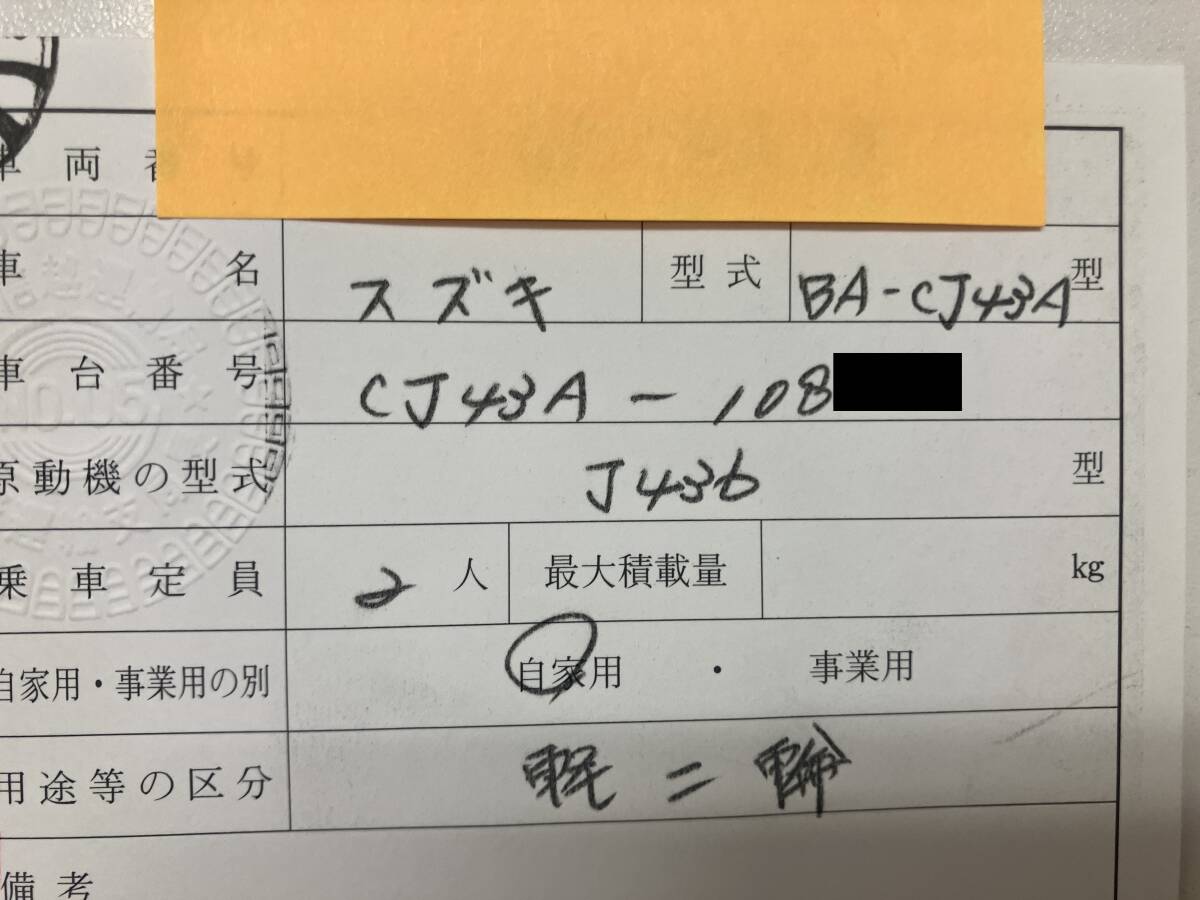 車両番
車名 スズキ 型式 BA-CJ43A型
車台番号 CJ43A-108
原動機の型式 J436 型
乗車定員 2人 最大積載量 kg
自家用・事業用の別 自家用 ・ 事業用
用途等の区分 軽二輪
備考